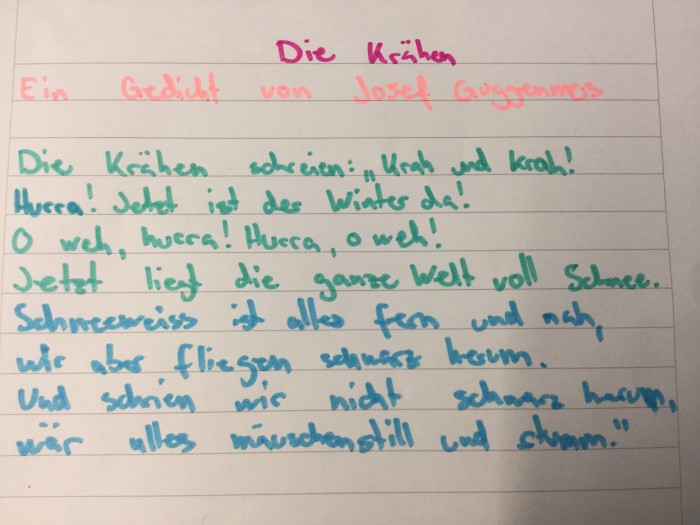 Die Krähen
Ein Gedicht von Josef Guggenmos
Die Krähen schreien: „Krah und krah!
Hurra! Jetzt ist der Winter da!
O weh, hurra! Hurra, o weh!
Jetzt liegt die ganze Welt voll Schnee.
Schneeweiss ist alles fern und nah,
wir aber fliegen schwarz herum.
Und schrien wir nicht schwarz harum,
wär alles mäuschenstill und stumm."